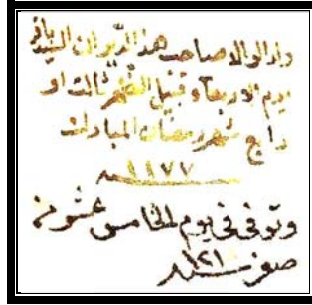 ولد الوالد صاحب هذا الديوان السيد باقر
يوم الاربعاء قبيل الظهر ثالث او
رابع شهر رمضان المبارك
١١٧٧
وتوفى في يوم الخامس عشر من
صفر سنه ١٢١